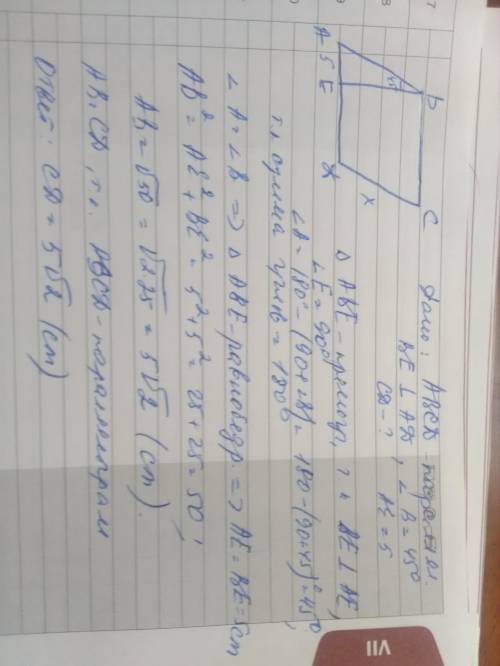 Дано: ABCD - паралелл.
BE ⊥ AD, ∠B = 45°
CD - ? AE = 5
B
C
45°
A 5 E
D
x
△ ABE - прямоуг, т.к BE ⊥ AE,
∠E = 90°
∠A = 180° - (90+∠B) = 180 - (90+45)° = 45°,
т.к сумма углов = 180°
∠A = ∠B => △ ABE - равнобедр. => AE = BE = 5cm
AB² = AE² + BE² = 5² + 5² = 25 + 25 = 50,
AB = √50 = √2·25 = 5√2 (cm).
AB = CD, т.к. ABCD - параллелограм
Ответ: CD = 5√2 (cm)
VII